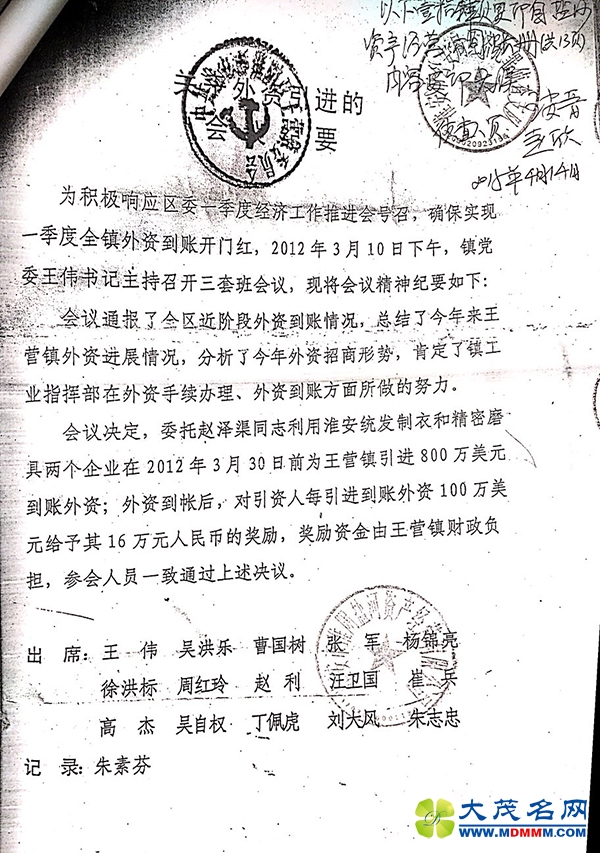 以下
资产经营
内容
2015年4月14日
关 外资引进的
会 要
为积极响应区委一季度经济工作推进会号召，确保实现
一季度全镇外资到账开门红，2012年3月10日下午，镇党
委王伟书记主持召开三套班会议，现将会议精神纪要如下：
会议通报了全区近阶段外资到账情况，总结了今年来王
营镇外资进展情况，分析了今年外资招商形势，肯定了镇工
业指挥部在外资手续办理、外资到账方面所做的努力。
会议决定，委托赵泽渠同志利用淮安统发制衣和精密磨
具两个企业在2012年3月30日前为王营镇引进800万美元
到账外资；外资到帐后，对引资人每引进到账外资100万美
元给予其16万元人民币的奖励，奖励资金由王营镇财政负
担，参会人员一致通过上述决议。
出 席：王 伟 吴洪乐 曹国树 张 军 杨锦亮
徐洪标 周红玲 赵 利 汪卫国 崔 兵
高 杰 吴自权 丁佩虎 刘大风 朱志忠
记 录：朱素芬
大茂名网
WWW.MDMMM.COM